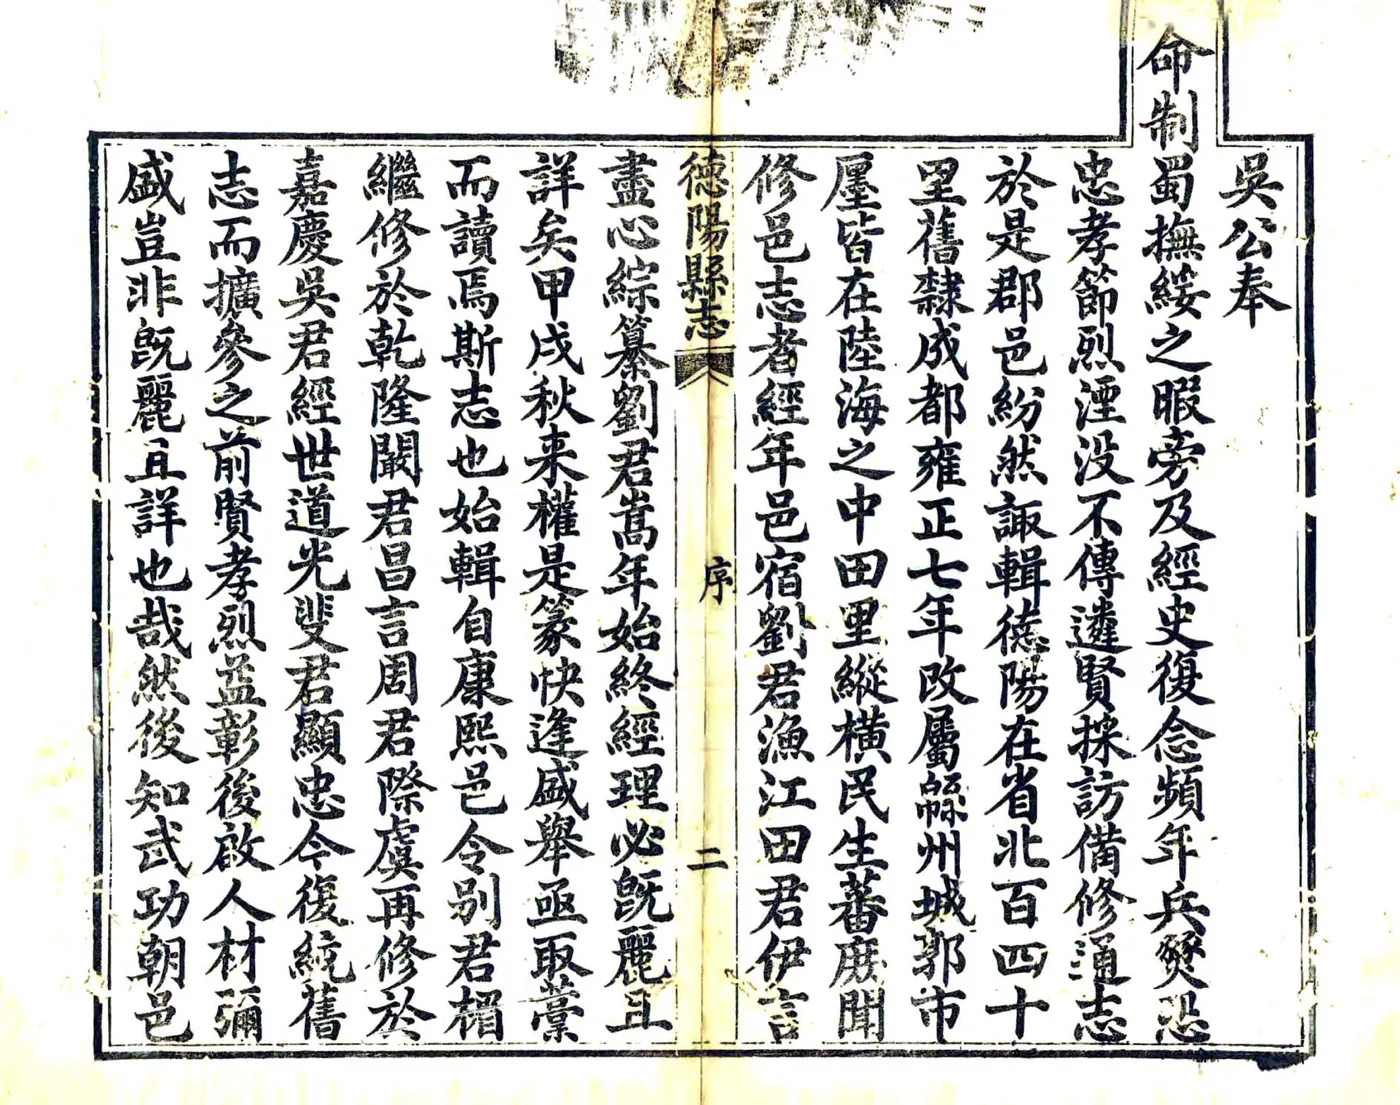 吳公奉
命制蜀撫綏之暇旁及經史復念頻年兵燹恐
忠孝節烈湮没不傳遴賢採訪備修通志
於是郡邑紛然諏輯德陽在省北百四十
里舊隸成都雍正七年改屬緜州城郭市
廛皆在陸海之中田里縱橫民生蕃庶聞
修邑志者經年邑宿劉君漁江田君伊言
德陽縣志
序
二
盡心綜纂劉君嵩年始終經理必既麗且
詳矣甲戌秋来權是篆快逢盛舉亟取藁
而讀焉斯志也始輯自康熙邑令别君楣
繼修於乾隆闞君昌言周君際虞再修於
嘉慶吳君經世道光斐君顯忠今復統舊
志而擴參之前賢孝烈益彰後啟人材彌
盛豈非既麗且詳也哉然後知武功朝邑